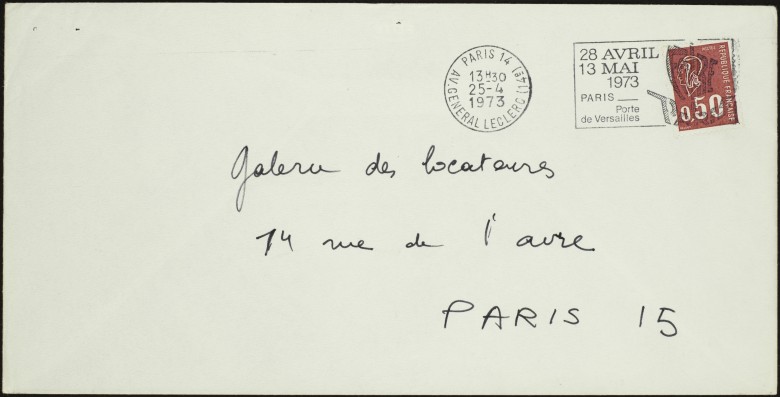 PARIS 14 (14E)
13H30
25-4
1973
AV. GENERAL LECLERC
28 AVRIL
13 MAI
1973
PARIS
Porte
de Versailles
REPUBLIQUE FRANCAISE
0,50
Galerie des locataires
14 rue de l'avre
PARIS 15